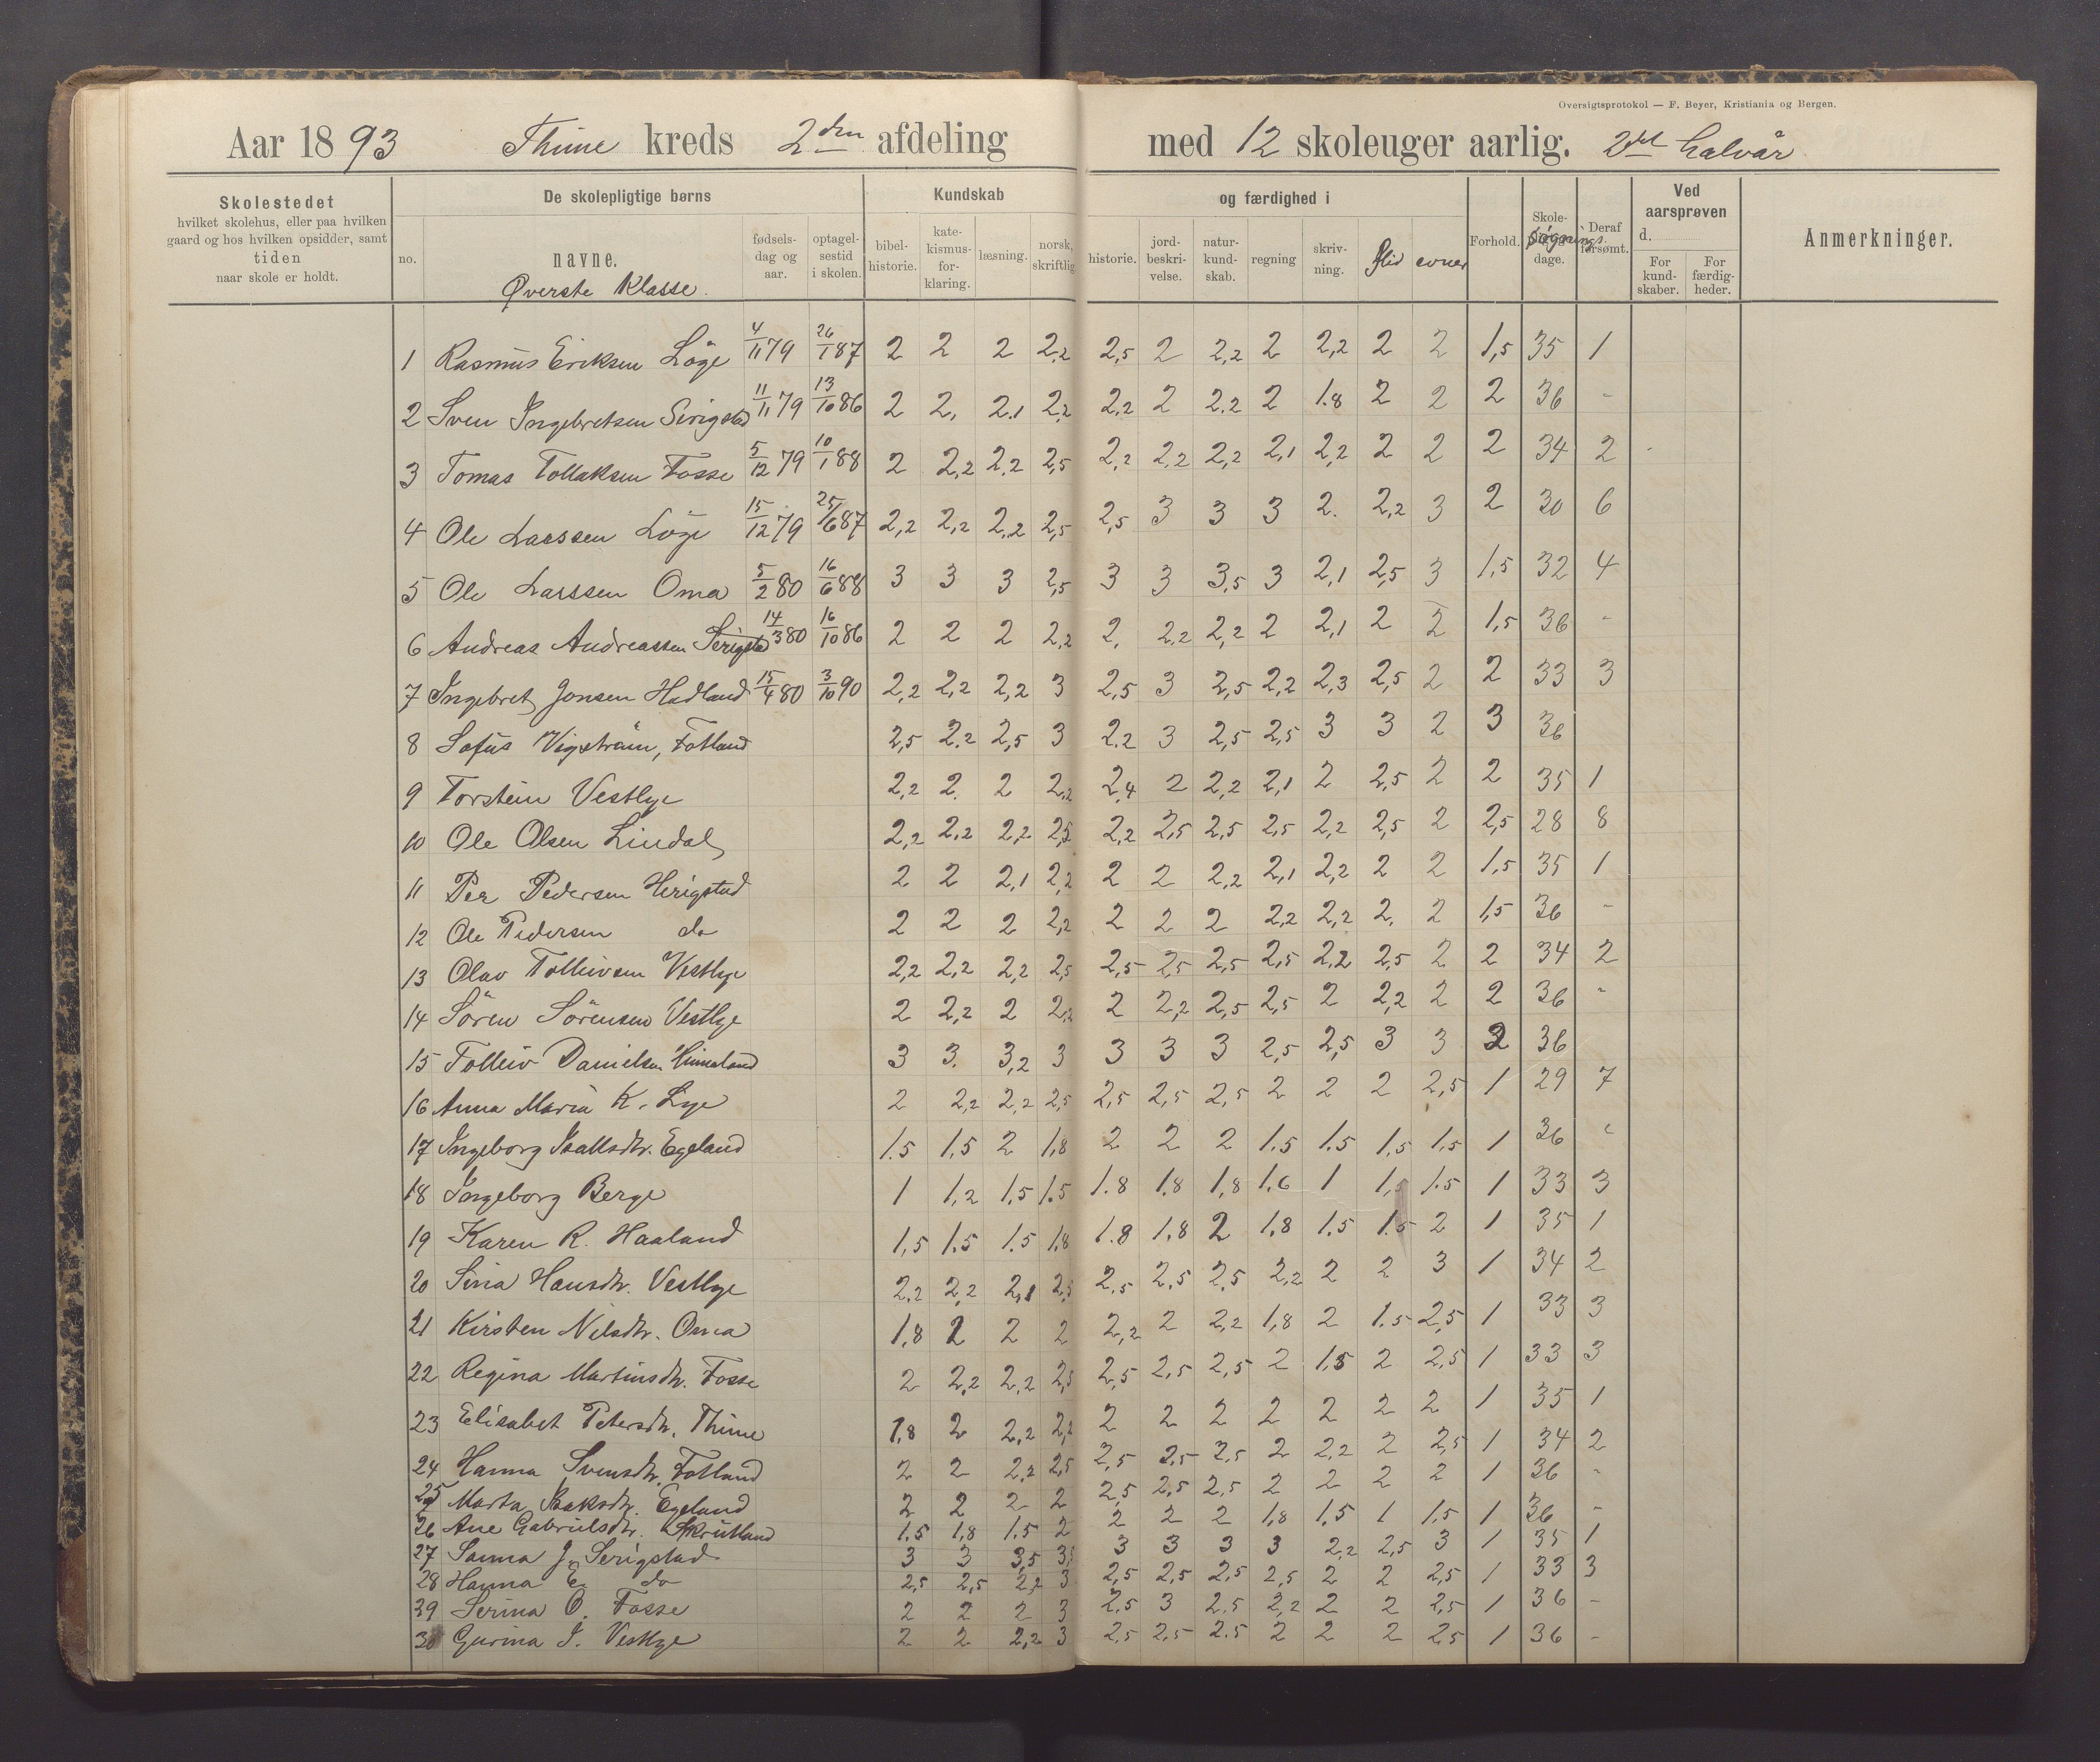 Oversigtsprotokol — F. Beyer, Kristiania og Bergen.
Aar 1893 Thime kreds 2den afdeling med 12 skoleuger aarlig. 2det halvår
Skolestedet hvilket skolehus, eller paa hvilken gaard og hos hvilken opsidder, samt tiden naar skole er holdt.
De skolepligtige børns
no. navne. fødsels-dag og aar. optagel-sestid i skolen.
Øverste Klasse.
Kundskab og færdighed i
bibel-historie. kate-kismus-for-klaring. læsning. norsk, skriftlig historie. jord-beskri-velse. natur-kund-skab. regning skriv-ning. flid evner
Forhold. Skole-søgnings dage. Deraf forsømt.
Ved aarsprøven d.
For kund-skaber. For færdig-heder.
Anmerkninger.
1 Rasmus Eriksen Löge 4/11 79 26/1 87 2 2 2 2,2 2,5 2 2,2 2 2,2 2 2 1,5 35 1
2 Sven Ingebretsen Serigstad 11/11 79 13/10 86 2 2, 2.1 2,2 2,2 2 2.2 2 1.8 2 2 2 36 -
3 Tomas Tollaksen Fosse 5/12 79 10/1 88 2 2,2 2,2 2,5 2,2 2,2 2,2 2,1 2,2 2 2 2 34 2
4 Ole Larssen Löge 15/12 79 25/6 87 2,2 2,2 2,2 2,5 2,5 3 3 3 2. 2,2 3 2 30 6
5 Ole Larssen Oma 5/2 80 16/6 88 3 3 3 2,5 3 3 3,5 3 2,1 2,5 3 1,5 32 4
6 Andreas Andreassen Serigstad 14/3 80 16/10 86 2 2 2 2,2 2, 2,2 2,2 2 2,1 2 2 1,5 36 -
7 Ingebret Jonsen Hadland 15/4 80 3/10 90 2,2 2,2 2,2 3 2,5 3 2,5 2,2 2,3 2,5 2 2 33 3
8 Sofus Vigström, Fotland 2,5 2.2 2,5 3 2.2 3 2,5 2,5 3 3 2 3 36
9 Torstein Vestlye 2,2 2. 2 2,2 2,4 2 2,2 2,1 2 2,5 2 2 35 1
10 Ole Olsen Lindal 2,2 2,2 2,2 2,5 2,2 2,5 2,5 2,5 2,2 2,5 2 2,5 28 8
11 Per Pedersen Herigstad 2 2 2,1 2,2 2 2 2,2 2,1 2,2 2 2 1,5 35 1
12 Ole Pedersen do 2 2 2 2,2 2 2 2 2,2 2,2 2. 2 1,5 36 -
13 Olav Tolleivsen Vestlye 2,2 2,2 2,2 2,5 2,5 2,5 2,5 2,5 2,2 2,5 2 2 34 2
14 Sören Sörensen Vestlye 2 2,2 2 2,2 2 2,2 2,5 2,5 2 2,2 2 2 36 -
15 Tolleiv Danielsen Himaland 3 3. 3,2 3 3 3 3 2,5 2,5 3 3 2 36
16 Anna Maria K. Lye 2 2,2 2,2 2,5 2,5 2,5 2,5 2 2 2 2,5 1 29 7
17 Ingeborg Isaksdtr. Egeland 1.5 1,5 2 1,8 2 2 2 1.5 1.5 1,5 1,5 1 36 -
18 Ingeborg Berge 1 1,2 1,5 1.5 1.8 1.8 1,8 1.6 1 1,5 1.5 1 33 3
19 Karen R. Haaland 1,5 1.5 1.5 1,8 1.8 1,8 2 1,8 1.5 1.5 2 1 35 1
20 Sina Hansdtr. Vestlye 2,2 2,2 2,1 2,5 2,5 2,5 2,5 2,2 2 2 3 1 34 2
21 Kirsten Nilsdtr. Oma 1,8 2 2 2 2,2 2 2,2 1,8 2 1.5 2,5 1 33 3
22 Regina Martinsdtr. Fosse 2 2,2 2,2 2,5 2,5 2,5 2,5 2 1,5 2 2,5 1 33 3
23 Elisabet Petersdtr. Thime 1,8 2 2,2 2,2 2 2 2 2 2 2 2 1 35 1
24 Hanna Svensdtr. Fotland 2 2 2,2 2,5 2,5 2,5 2,5 2 2,2 2 2,5 1 34 2
25 Marta Isaksdtr. Egeland 2 2 2 2 2,5 2,5 2,5 2 2 2 2 1 36 -
26 Ane Gabrielsdtr. Skrutland 1.5 1,8 1.5 2 2 2 2 1,8 1.5 1 1.5 1 36 -
27 Sanna J. Serigstad 3 3 3,5 3,5 3 3 3 3 2,2 2,5 3 1 35 1
28 Hanna E. do 2,5 2,5 2,2 3 2,5 2,5 2,5 2,5 2 2 2,5 1 33 3
39 Serina O. Fosse 2 2 2 3 2.5 3 2.5 2,2 2 2 2,5 1 36 -
30 Gurina I. Vestlye 2 2 2,2 3 2,5 2,5 2.5 2 2 2 2,5 1 36 -